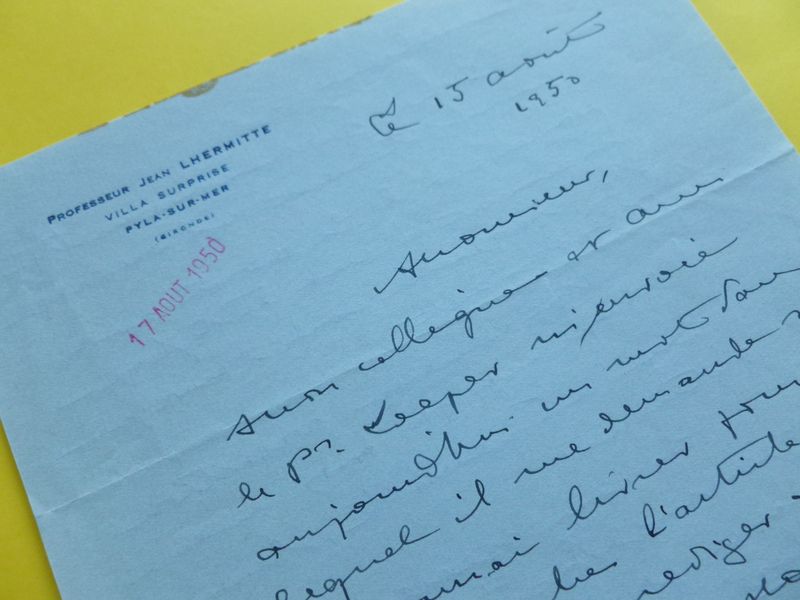 PROFESSEUR JEAN LHERMITTE
VILLA SURPRISE
PYLA-SUR-MER
(GIRONDE)
17 AOUT 1950
le 15 août
1950
Monsieur,
Mon collègue et ami
le Pr. m'envoie
aujourd'hui un mot dans
lequel il me demande
livrer pour
l'article
rédiger